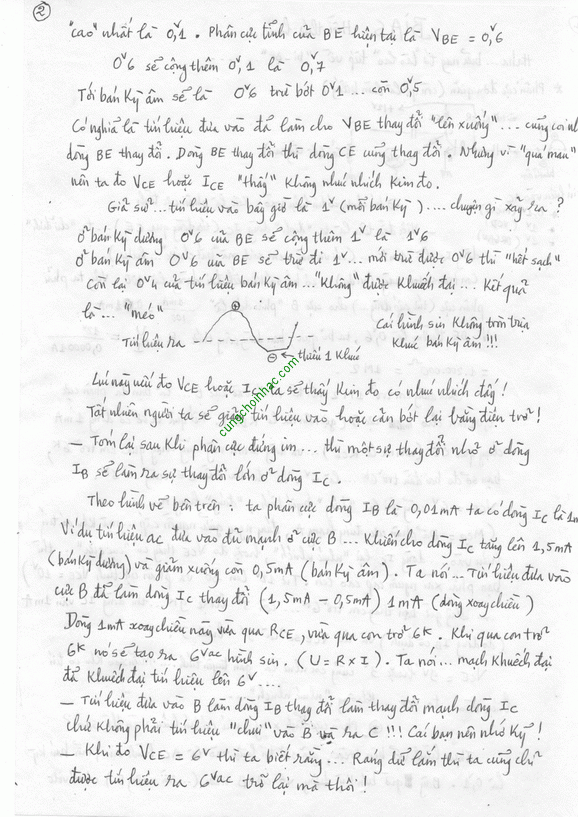 2
"cao" nhất là 0,ⱽ1 . Phân cực tĩnh của BE hiện tại là VBE = 0,ⱽ6
0ⱽ6 sẽ cộng thêm 0ⱽ,1 là 0,ⱽ7
Tới bán kỳ âm sẽ là 0ⱽ6 trừ bớt 0ⱽ1 ... còn 0,ⱽ5
Có nghĩa là tín hiệu đưa vào đã làm cho VBE thay đổi "lên xuống" ... cũng coi như
dòng BE thay đổi . Dòng BE thay đổi thì dòng CE cũng thay đổi . Nhưng vì "quá mau"
nên ta đo VCE hoặc ICE "thấy" không nhúc nhích kim đo .
Giả sử ... tín hiệu vào bây giờ là 1ⱽ (mỗi bán kỳ) .... chuyện gì xảy ra ?
ở bán kỳ dương 0ⱽ6 của BE sẽ cộng thêm 1ⱽ là 1ⱽ6
ở bán kỳ âm 0ⱽ6 của BE sẽ trừ đi 1ⱽ ... mới trừ được 0ⱽ6 thì "hết sạch"
Còn lại 0ⱽ4 của tín hiệu bán kỳ âm ... "không" được khuếch đại ... Kết quả
là ... "méo"
Tín hiệu ra
+
−
thiếu 1 khúc
Cái hình sin không tròn trịa
khúc bán kỳ âm !!!
cungchoinhac.com
Lúc này nếu đo VCE hoặc IC ta sẽ thấy kim đo có nhúc nhích đấy !
Tất nhiên người ta sẽ giảm tín hiệu vào hoặc cản bớt lại bằng điện trở !
— Tóm lại sau khi phân cực đứng im ... thì một sự thay đổi nhỏ ở dòng
IB sẽ làm ra sự thay đổi lớn ở dòng IC .
Theo hình vẽ bên trên : ta phân cực dòng IB là 0,01mA ta có dòng IC là 1m
Ví dụ tín hiệu ac đưa vào đủ mạnh ở cực B ... khiến cho dòng IC tăng lên 1,5mA
(bán kỳ dương) và giảm xuống còn 0,5mA (bán kỳ âm) . Ta nói ... Tín hiệu đưa vào
cực B đã làm dòng IC thay đổi (1,5mA − 0,5mA) 1mA (dòng xoay chiều)
Dòng 1mA xoay chiều này vừa qua RCE , vừa qua con trở 6ᴷ . Khi qua con trở
6ᴷ nó sẽ tạo ra 6Vac hình sin . (U = R x I) . Ta nói ... mạch khuếch đại
đã khuếch đại tín hiệu lên 6ⱽ ....
— Tín hiệu đưa vào B làm dòng IB thay đổi làm thay đổi mạnh dòng IC
chứ không phải tín hiệu "chui" vào B và ra C !!! Cái bạn nên nhớ kỹ !
— Khi đo VCE = 6ⱽ thì ta biết rằng ... Ráng dữ lắm thì ta cũng chỉ
được tín hiệu ra 6Vac trở lại mà thôi !